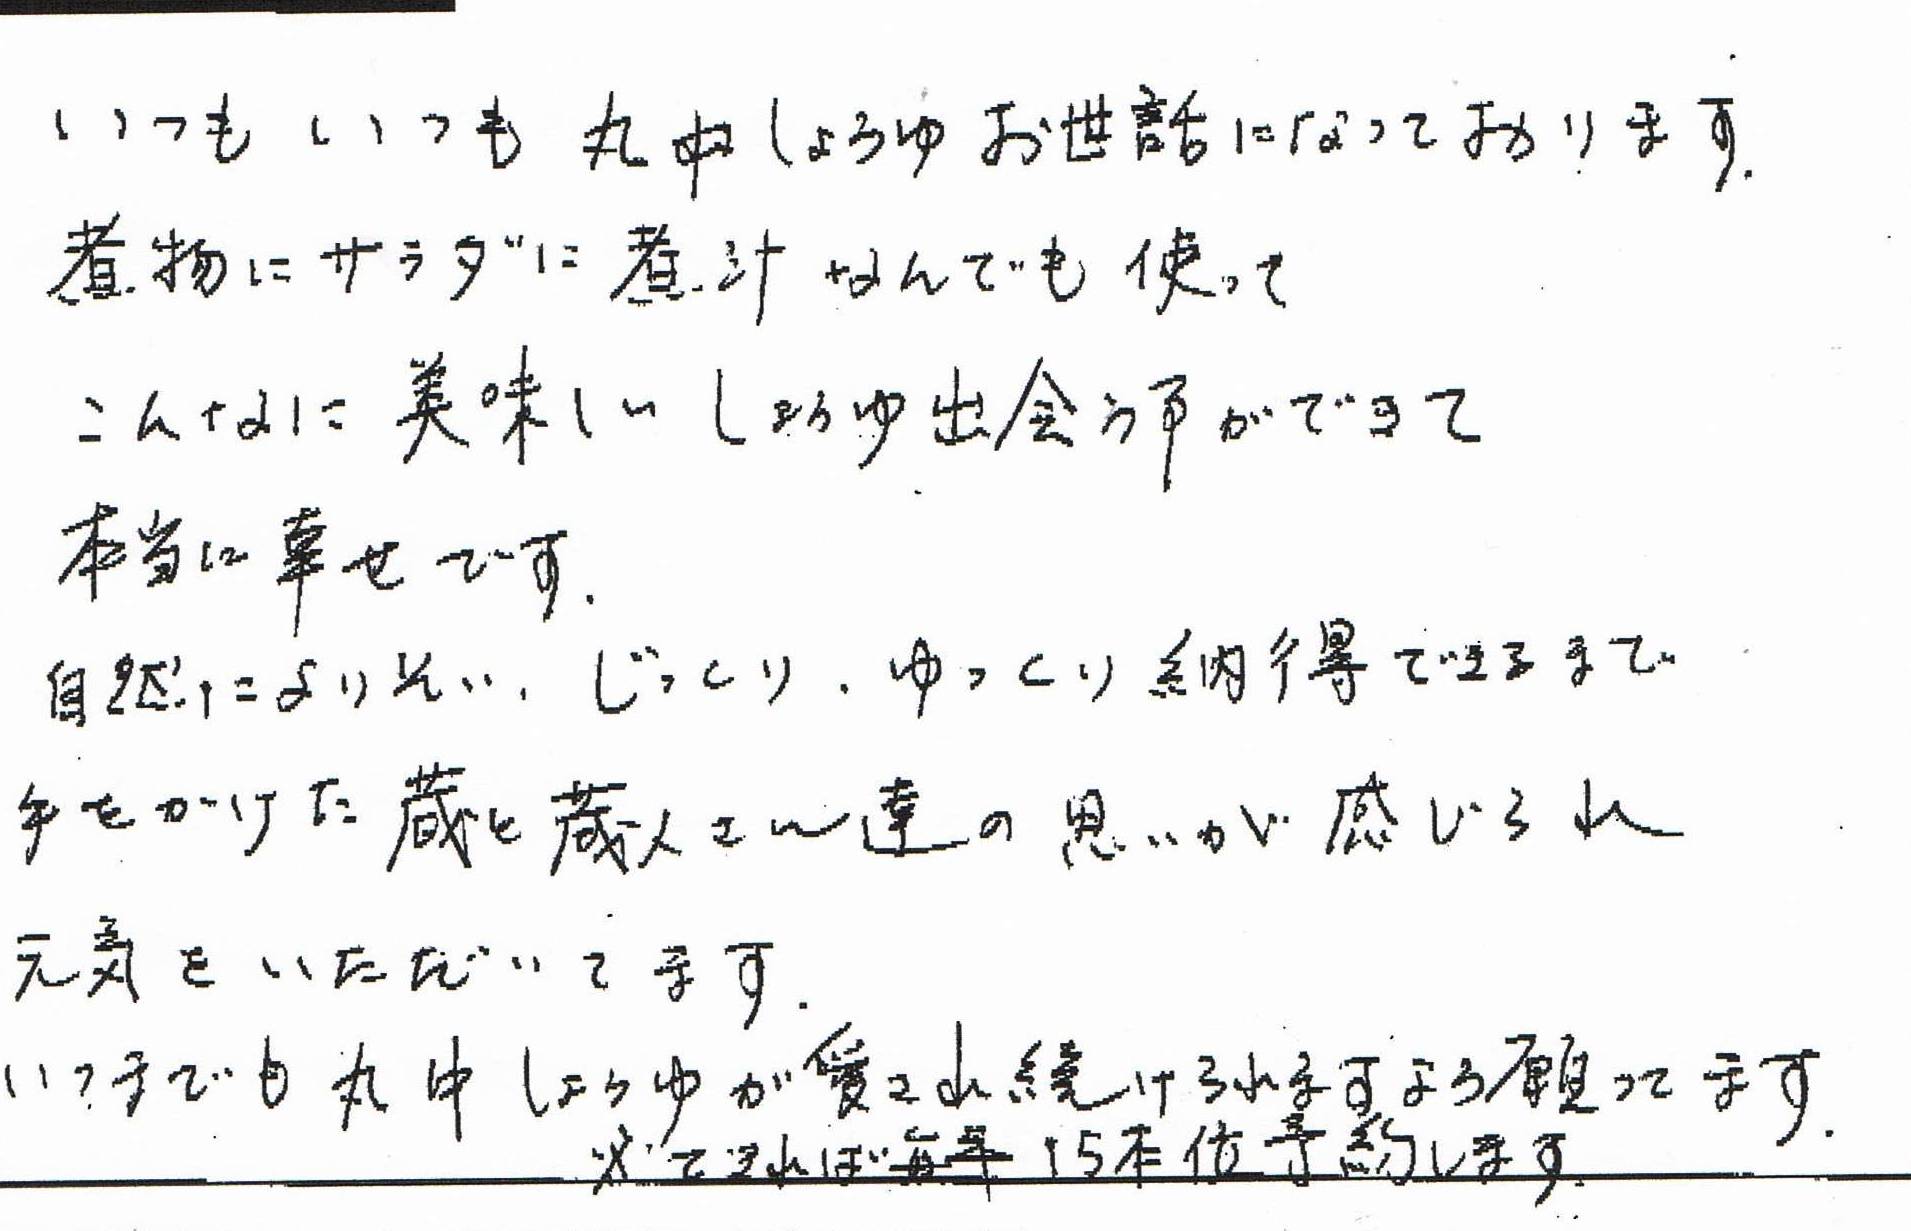 いつもいつも 丸中しょうゆお世話になっております.
煮物にサラダに煮汁なんでも使って
こんなに美味しいしょうゆ出会う事ができて
本当に幸せです.
自然によりそい、じっくり、ゆっくり納得できるまで
手をかけた蔵と蔵人さん達の思いが感じられ
元気をいただいてます.
いつまでも丸中しょうゆが愛され続けられますよう願ってます.
※できれば毎年15本位予約します